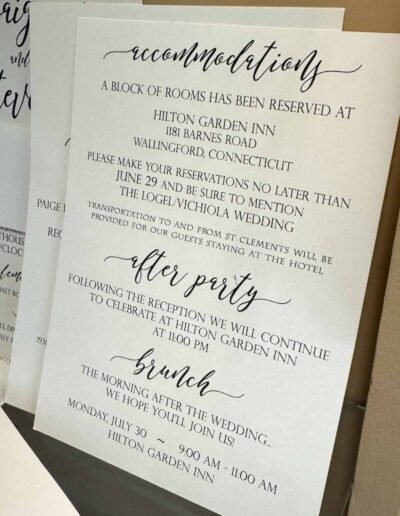 aig
and
accommodations
A BLOCK OF ROOMS HAS BEEN RESERVED AT
HILTON GARDEN INN
1181 BARNES ROAD
WALLINGFORD, CONNECTICUT
PLEASE MAKE YOUR RESERVATIONS NO LATER THAN
JUNE 29 AND BE SURE TO MENTION
THE LOGEL/VICHIOLA WEDDING
TRANSPORTATION TO AND FROM ST CLEMENTS WILL BE
PROVIDED FOR OUR GUESTS STAYING AT THE HOTEL
after party
FOLLOWING THE RECEPTION WE WILL CONTINUE
TO CELEBRATE AT HILTON GARDEN INN
AT 11:00 PM
brunch
THE MORNING AFTER THE WEDDING..
WE HOPE YOU'LL JOIN US!
MONDAY, JULY 30 ~ 9:00 AM - 11:00 AM
HILTON GARDEN INN
PAIGE
REC
193